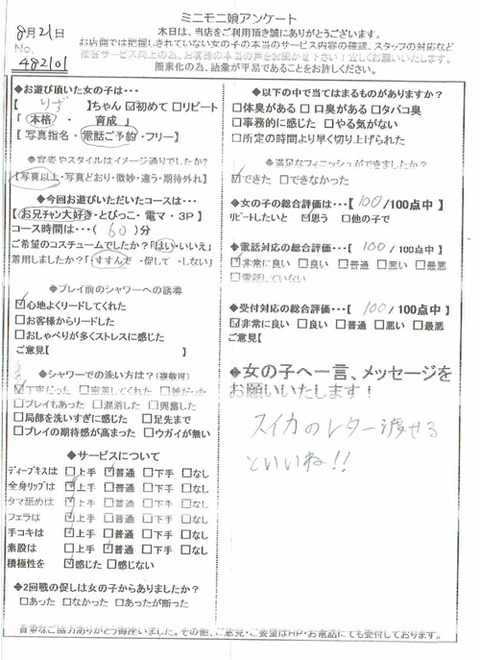 ミニモニ娘アンケート
8月21日
No.
482101
本日は、当店をご利用頂き誠にありがとうございます。
お店側では把握しきれていない女の子の本当のサービス内容の確認、スタッフの対応など
接客サービス向上の為、お客様の本当の声をお聞かせ下さい!宜しくお願いいたします。
簡素化の為、語彙が平易であることをお許しください。
◆お遊び頂いた女の子は・・・
【 りざ 】ちゃん ☑初めて □リピート
「 本格 ・ 育成 」
【 写真指名・電話ご予約・フリー】
◆容姿やスタイルはイメージ通りでしたか?
【写真以上・写真どおり・微妙・違う・期待外れ】
◆今回お遊びいただいたコースは・・・
【お兄チャン大好き・とびっこ・電マ・3P】
コース時間は・・・( 60 )分
ご希望のコスチュームでしたか?「はい・いいえ」
着用しましたか?「すすんで ・促して ・しない」
◆プレイ前のシャワーへの誘導
☑心地よくリードしてくれた
□お客様からリードした
□おしゃべりが多くストレスに感じた
ご意見【 】
◆シャワーでの洗い方は?(複数可)
☑丁寧だった □密着してくれた □雑だった
□プレイもあった □混浴した □興奮した
□局部を洗いすぎに感じた □足先まで
□プレイの期待感が高まった □ウガイが無い
◆サービスについて
ディープキスは □上手 ☑普通 □下手 □なし
全身リップは ☑上手 □普通 □下手 □なし
タマ舐めは ☑上手 □普通 □下手 □なし
フェラは ☑上手 □普通 □下手 □なし
手コキは ☑上手 □普通 □下手 □なし
素股は □上手 ☑普通 □下手 □なし
積極性を ☑感じた □感じない
◆2回戦の促しは女の子からありましたか?
□あった □なかった □あったが断った
◆以下の中で当てはまるものがありますか?
□体臭がある □口臭がある □タバコ臭
□事務的に感じた □やる気がない
□所定の時間より早く切り上げられた
◆満足なフィニッシュができましたか?
☑できた □できなかった
◆女の子の総合評価・・・【 100 /100点中 】
リピートしたいと ☑思う □他の子で
◆電話対応の総合評価・・・【 100 /100点中】
☑非常に良い □良い □普通 □悪い □最悪
□電話していない
◆受付対応の総合評価・・・【 100 /100点中】
☑非常に良い □良い □普通 □悪い □最悪
ご意見【 】
◆女の子へ一言、メッセージを
お願いいたします!
スイカのレター渡せる
といいね!!
貴重なご協力ありがとう御座いました。その他、ご意見・ご要望はHP・お電話にても受付しております。